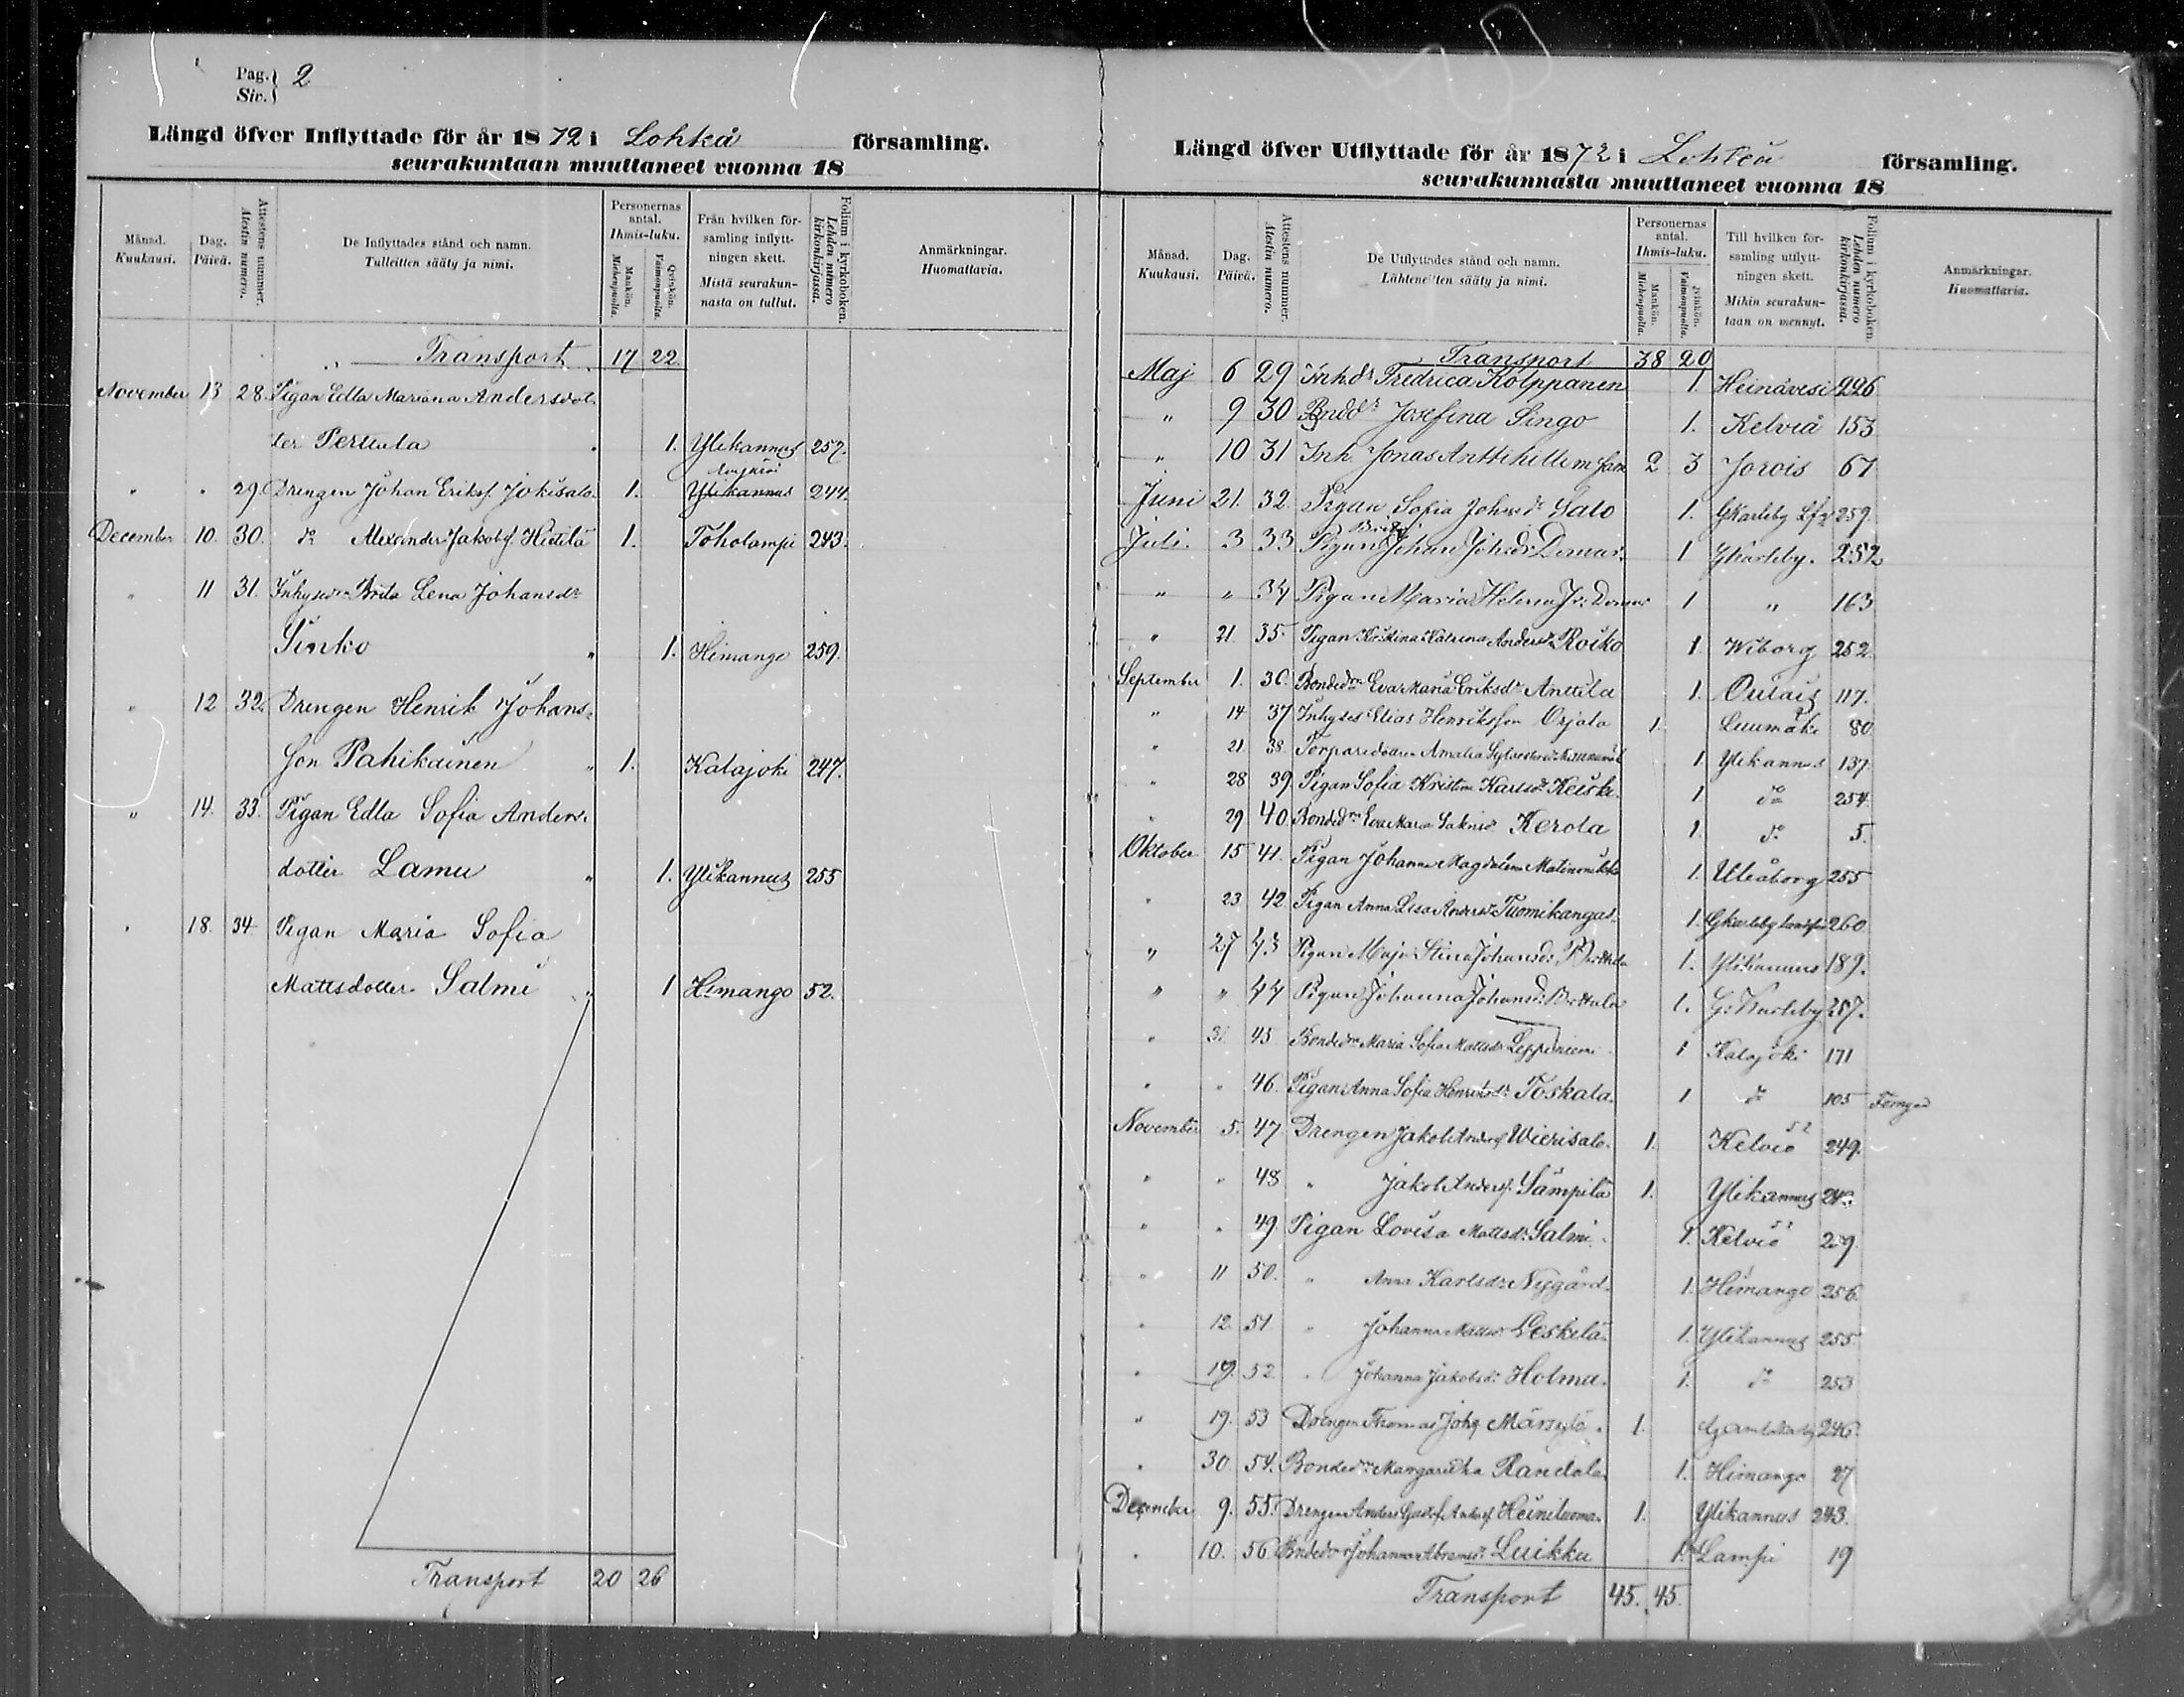 Pag. Siv. 2
Längd öfver Inflyttade för år 1872 i Lohteå församling.
seurakuntaan muuttaneet vuonna 18
Månad. Kuukausi.
Dag. Päivä.
Attestens nummer. Atestin numero.
De Inflyttades stånd och namn. Tulleitten sääty ja nimi.
Personernas antal. Ihmis-luku.
Mankön. Miehenpuolta.
Qvinkön. Vaimonpuolta.
Från hvilken församling inflyttningen skett. Mistä seurakunnasta on tullut.
Folium i kyrkoboken. Lehden numero kirkonkirjassa.
Anmärkningar. Huomattavia.
Transport 17 22.
November 13 28. Pigan Edla Mariana Andersdot-
ter Perttula 1. Ylikannus 257.
" " 29. Drengen Johan Eriksf. Jokisalo. 1. Ylikannus 244.
December 10. 30. do Alexander Jakobsf. Hietilä 1. Toholampi 243.
" 11 31. Inhysedr Brita Lena Johansdr
Sinko 1. Himango 259.
" 12 32. Drengen Henrik Johans-
son Pahikainen 1. Kalajoki 247.
" 14. 33. Pigan Edla Sofia Anders-
dotter Lamu 1. Ylikannus 255
" 18. 34. Pigan Maria Sofia
Mattsdotter Salmi 1 Himango 52.
Transport 20 26
Längd öfver Utflyttade för år 1872 i Lohteå församling.
seurakunnasta muuttaneet vuonna 18
Månad. Kuukausi.
Dag. Päivä.
Attestens nummer. Atestin numero.
De Utflyttades stånd och namn. Lähteneitten sääty ja nimi.
Personernas antal. Ihmis-luku.
Mankön. Miehenpuolta.
Qvinkön. Vaimonpuolta.
Till hvilken församling utflyttningen skett. Mihin seurakuntaan on mennyt.
Folium i kyrkoboken. Lehden numero kirkonkirjassa.
Anmärkningar. Huomattavia.
Transport 38 20
Maj 6 29 Inh.dr Fredrica Kolppanen 1. Heinävesi 226
" 9 30 Bnddr Josefina Singo 1. Kelviå 153
" 10 31 Inh. Jonas Anttihillem 2 3 Jorois 67
Juni 21. 32. Pigan Sofia Johsdr Salo 1. GKarleby Lfs 259.
Juli. 3 33 Pigan Brita Johan Johsdr 1 GKarleby. 252
" " 34 Pigan Maria Helena 1 " 163
" 21. 35. Pigan Kristina Katrina Andersdr Roiko 1 Wiborg 252
September 1. 36. Bondedr Eva Maria Eriksdr Anttila 1. Oulais 117.
" 14 37 Inhyses Elias Henriksson Orjala 1. Luumäki 80
" 21 38. Torparedottern Amalia 1 Ylikannus 137.
" 28 39. Pigan Sofia Kristina Karlsdr Keiski 1 do 254.
" 29 40. Bondedr Eva Maria Kerola 1. do 5.
Oktober 15 41. Pigan Johanna Magdalena 1. Uleåborg 255
" 23 42. Pigan Anna Lisa Andersdr Tuomikangas. 1. GKarleby landsfs 260.
" 27 43 Pigan Maja Stina Johansdr 1. Ylikannus 189.
" " 44 Pigan Johanna Johansdr 1. G: Karleby 257.
" 31 45 Bondedr Maria Sofia Mattsdr Leppiniemi 1 Kalajoki 171
" " 46. Pigan Anna Sofia Henriksdr Toskala. 1 do 105
November 5. 47 Drengen Jakob Andersf Wierisalo. 1. Kelviå 249.
" " 48 " Jakob Andersf. Sämpilä 1. Ylikannus
" " 49 Pigan Lovisa Mattsdr Salmi. 1. Kelviå 259
" 11 50. " Anna Karlsdr Nygård. 1. Himango 256.
" 12. 51 " Johanna Mattsdr Leskelä. 1. Ylikannus 255.
" 19. 52 " Johanna Jakobsdr Holma. 1. do 253
" 19. 53 Drengen Thomas Johs 1. Gamlakarleby 246.
" 30 54. Bondedr Margaretha Randala 1. Himango 27
December 9. 55. Drengen Anders Gustaf Andersf Heiniluoma. 1. Ylikannus 243.
" 10. 56 Bndedr Johanna Abramsdr Luikku 1. Lampi 19
Transport 45. 45.